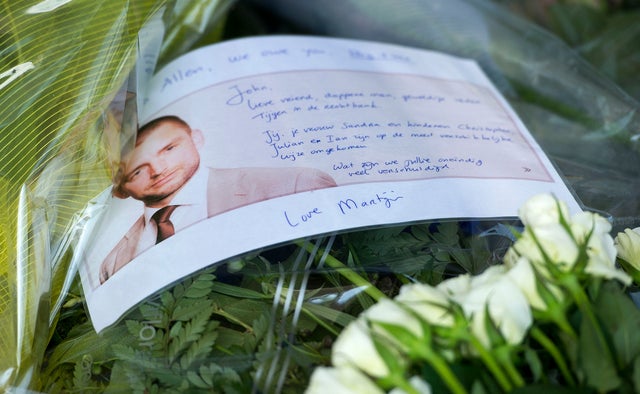 Allen, We owe you,
John,
Lieve vriend, dappere man, geweldige
Tijger in de rechtbank
Jij, je vrouw Sandra en kinderen Christopher,
Julian en Ian zijn op de meest
wijze omgekomen
Wat zijn we jullie oneindig
veel verschuldigd
»
Love Martijn